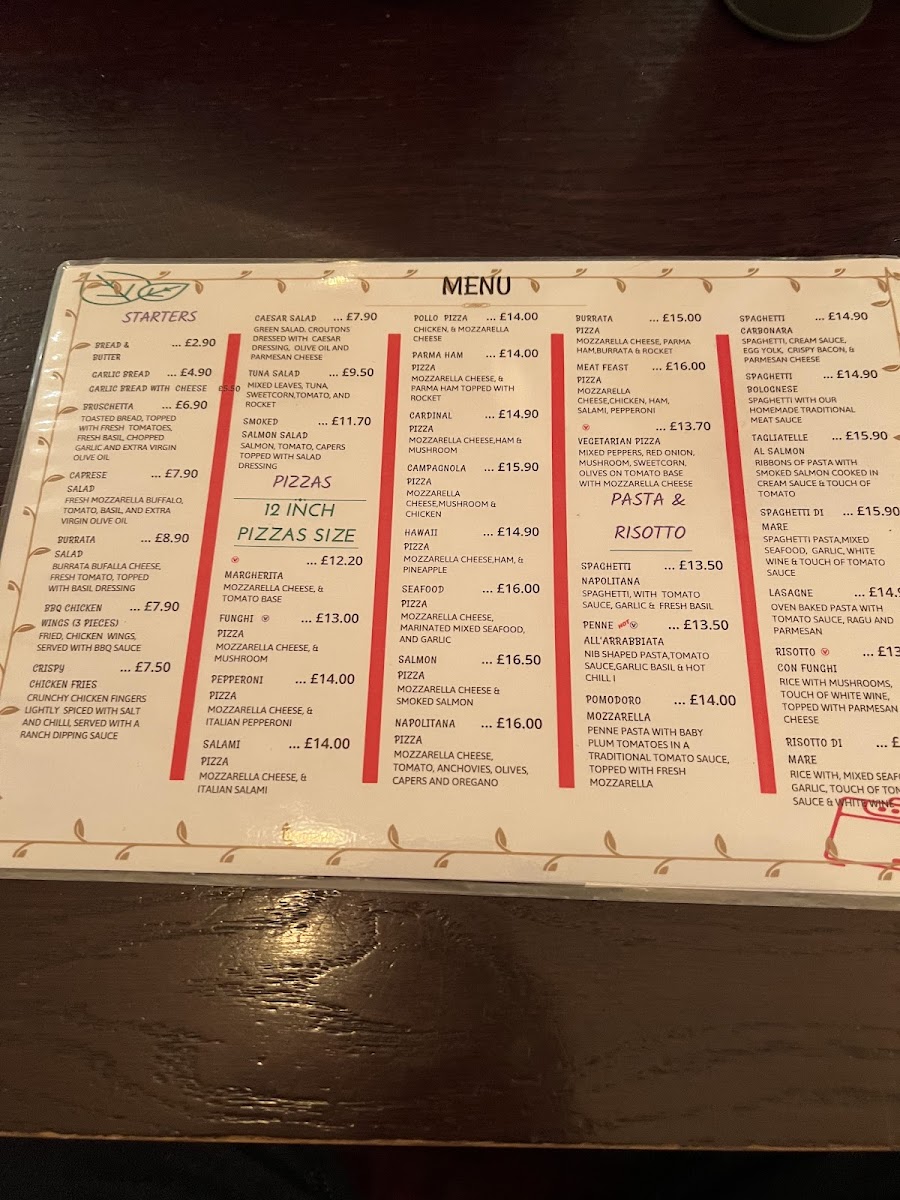 MENU
STARTERS
BREAD & ... £2.90
BUTTER
GARLIC BREAD ... £4.90
GARLIC BREAD WITH CHEESE £5.50
BRUSCHETTA ... £6.90
TOASTED BREAD, TOPPED
WITH FRESH TOMATOES,
FRESH BASIL, CHOPPED
GARLIC AND EXTRA VIRGIN
OLIVE OIL
CAPRESE ... £7.90
SALAD
FRESH MOZZARELLA BUFFALO,
TOMATO, BASIL, AND EXTRA
VIRGIN OLIVE OIL
BURRATA ... £8.90
SALAD
BURRATA BUFALLA CHEESE,
FRESH TOMATO, TOPPED
WITH BASIL DRESSING
BBQ CHICKEN ... £7.90
WINGS (3 PIECES)
FRIED, CHICKEN WINGS,
SERVED WITH BBQ SAUCE
CRISPY ... £7.50
CHICKEN FRIES
CRUNCHY CHICKEN FINGERS
LIGHTLY SPICED WITH SALT
AND CHILLI, SERVED WITH A
RANCH DIPPING SAUCE
CAESAR SALAD ... £7.90
GREEN SALAD, CROUTONS
DRESSED WITH CAESAR
DRESSING, OLIVE OIL AND
PARMESAN CHEESE
TUNA SALAD ... £9.50
MIXED LEAVES, TUNA,
SWEETCORN,TOMATO, AND
ROCKET
SMOKED ... £11.70
SALMON SALAD
SALMON, TOMATO, CAPERS
TOPPED WITH SALAD
DRESSING
PIZZAS
12 INCH
PIZZAS SIZE
V ... £12.20
MARGHERITA
MOZZARELLA CHEESE, &
TOMATO BASE
FUNGHI V ... £13.00
PIZZA
MOZZARELLA CHEESE, &
MUSHROOM
PEPPERONI ... £14.00
PIZZA
MOZZARELLA CHEESE, &
ITALIAN PEPPERONI
SALAMI ... £14.00
PIZZA
MOZZARELLA CHEESE, &
ITALIAN SALAMI
POLLO PIZZA ... £14.00
CHICKEN, & MOZZARELLA
CHEESE
PARMA HAM ... £14.00
PIZZA
MOZZARELLA CHEESE, &
PARMA HAM TOPPED WITH
ROCKET
CARDINAL ... £14.90
PIZZA
MOZZARELLA CHEESE,HAM &
MUSHROOM
CAMPAGNOLA ... £15.90
PIZZA
MOZZARELLA
CHEESE,MUSHROOM &
CHICKEN
HAWAII ... £14.90
PIZZA
MOZZARELLA CHEESE,HAM, &
PINEAPPLE
SEAFOOD ... £16.00
PIZZA
MOZZARELLA CHEESE,
MARINATED MIXED SEAFOOD,
AND GARLIC
SALMON ... £16.50
PIZZA
MOZZARELLA CHEESE &
SMOKED SALMON
NAPOLITANA ... £16.00
PIZZA
MOZZARELLA CHEESE,
TOMATO, ANCHOVIES, OLIVES,
CAPERS AND OREGANO
BURRATA ... £15.00
PIZZA
MOZZARELLA CHEESE, PARMA
HAM,BURRATA & ROCKET
MEAT FEAST ... £16.00
PIZZA
MOZZARELLA
CHEESE,CHICKEN, HAM,
SALAMI, PEPPERONI
V ... £13.70
VEGETARIAN PIZZA
MIXED PEPPERS, RED ONION,
MUSHROOM, SWEETCORN,
OLIVES ON TOMATO BASE
WITH MOZZARELLA CHEESE
PASTA &
RISOTTO
SPAGHETTI ... £13.50
NAPOLITANA
SPAGHETTI, WITH TOMATO
SAUCE, GARLIC & FRESH BASIL
PENNE HOT V ... £13.50
ALL'ARRABBIATA
NIB SHAPED PASTA,TOMATO
SAUCE,GARLIC BASIL & HOT
CHILL I
POMODORO ... £14.00
MOZZARELLA
PENNE PASTA WITH BABY
PLUM TOMATOES IN A
TRADITIONAL TOMATO SAUCE,
TOPPED WITH FRESH
MOZZARELLA
SPAGHETTI ... £14.90
CARBONARA
SPAGHETTI, CREAM SAUCE,
EGG YOLK, CRISPY BACON, &
PARMESAN CHEESE
SPAGHETTI ... £14.90
BOLOGNESE
SPAGHETTI WITH OUR
HOMEMADE TRADITIONAL
MEAT SAUCE
TAGLIATELLE ... £15.90
AL SALMON
RIBBONS OF PASTA WITH
SMOKED SALMON COOKED IN
CREAM SAUCE & TOUCH OF
TOMATO
SPAGHETTI DI ... £15.90
MARE
SPAGHETTI PASTA,MIXED
SEAFOOD, GARLIC, WHITE
WINE & TOUCH OF TOMATO
SAUCE
LASAGNE ... £14.9
OVEN BAKED PASTA WITH
TOMATO SAUCE, RAGU AND
PARMESAN
RISOTTO V ... £13
CON FUNGHI
RICE WITH MUSHROOMS,
TOUCH OF WHITE WINE,
TOPPED WITH PARMESAN
CHEESE
RISOTTO DI ... £
MARE
RICE WITH, MIXED SEAFO
GARLIC, TOUCH OF TOM
SAUCE & WHITE WINE